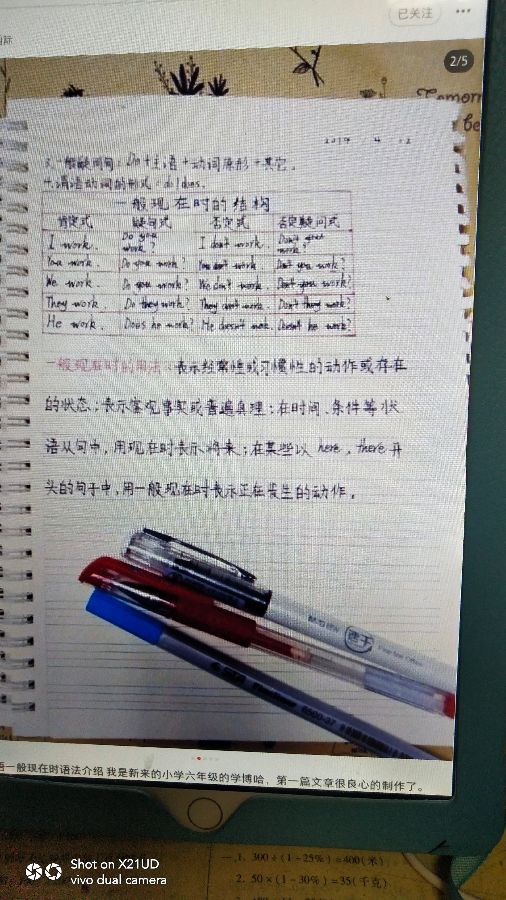 已关注
2/5
Tomorr
be
3.一般疑问句:Do+主语+动词原形+其它。
4.谓语动词的形式:do/does.
一般现在时的结构
肯定式 疑问式 否定式 否定疑问式
I work. Do you work? I don't work. Don't you work?
You work. Do you work? You don't work. Don't you work?
We work. Do you work? We don't work. Don't you work?
They work. Do they work? They don't work. Don't they work?
He work. Does he work? He doesn't work. Doesn't he work?
一般现在时的用法:表示经常性或习惯性的动作或存在
的状态;表示客观事实或普遍真理;在时间、条件等状
语从句中,用现在时表示将来;在某些以 here, there 开
头的句子中,用一般现在时表示正在发生的动作。
语一般现在时语法介绍 我是新来的小学六年级的学博哈,第一篇文章很良心的制作了。
一、1. 300÷(1-25%)=400(米)
2. 50×(1-30%)=35(千克)
Shot on X21UD
vivo dual camera